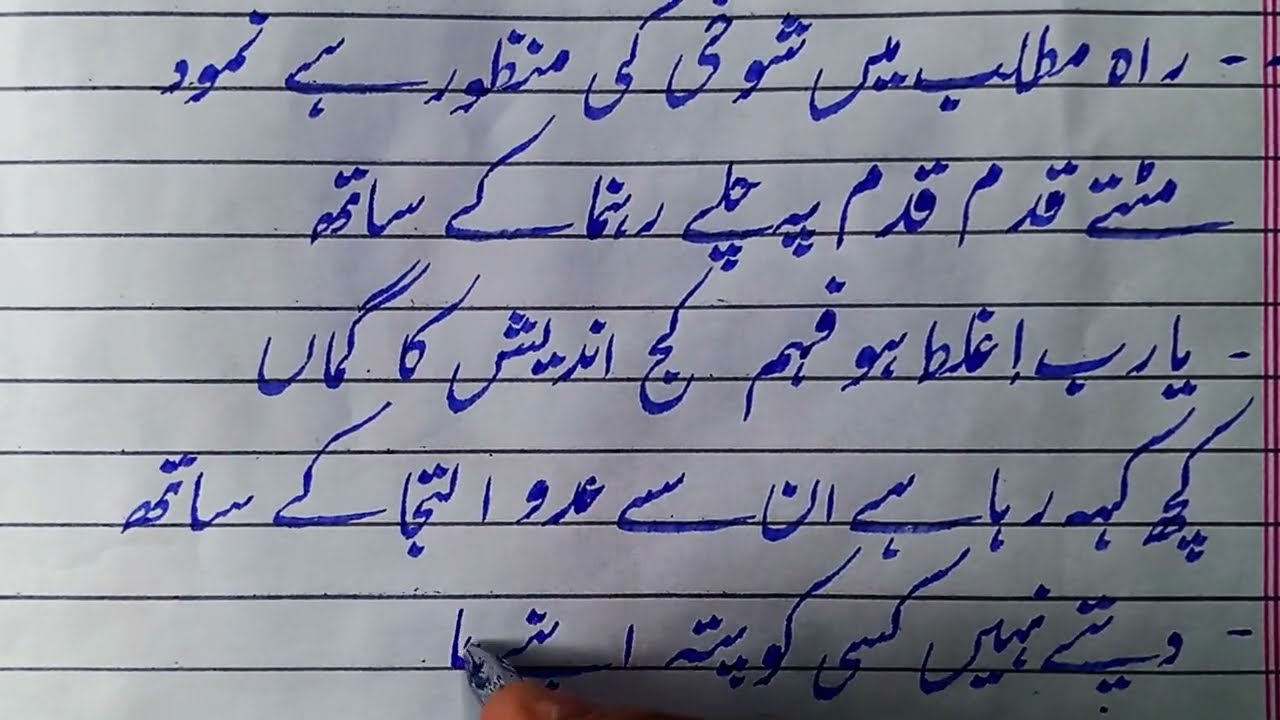 - راہ مطلب میں شوخی کی منظور ہے نمود
مٹتے قدم قدم پہ چلے رہنما کے ساتھ
- یا رب! غلط ہو فہم کج اندیش کا گماں
کچھ کہہ رہا ہے ان سے عدو التجا کے ساتھ
- دیتے نہیں کسی کو پتہ